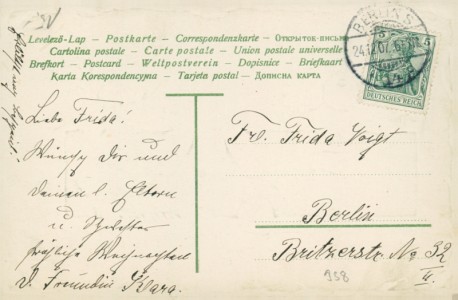 Levelező-Lap – Postkarte – Correspondenzkarte – Открыток-письм
Cartolina postale – Carte postale – Union postale universelle
Brefkort – Postcard – Weltpostverein – Dopisnice – Briefkaart
Karta Korespondencyjna – Tarjeta postal – Дописна карта
BERLIN S
24.12.07. 6
5
5
DEUTSCHES REICH
Liebe Frida!
Wünsche Dir und
Deinen l. Eltern
u.
fröhliche Weihnachten
D. Freundin Klara.
Frl. Frida Voigt
Berlin
Britzerstr. No 32
II.
958